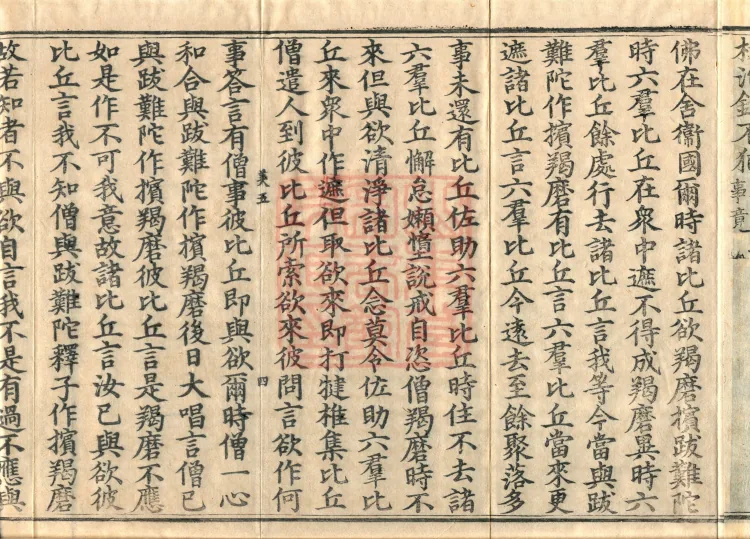 佛在舍衞國爾時諸比丘欲羯磨擯跋難陀
時六羣比丘在衆中遮不得成羯磨異時六
羣比丘餘處行去諸比丘言我等今當與跋
難陀作擯羯磨有比丘言六羣比丘當來更
遮諸比丘言六羣比丘今遠去至餘聚落多
事未還有比丘佐助六羣比丘時住不去諸
六羣比丘懈怠嬾墮說戒自恣僧羯磨時不
來但與欲清淨諸比丘念莫令佐助六羣比
丘來衆中作遮但取欲來即打揵椎集比丘
僧遣人到彼比丘所索欲來彼問言欲作何
英五
四
事答言有僧事彼比丘即與欲爾時僧一心
和合與跋難陀作擯羯磨後日大唱言僧已
與跋難陀作擯羯磨彼比丘言是羯磨不應
如是作不可我意故諸比丘言汝已與欲彼
比丘言我不知僧與跋難陀釋子作擯羯磨
故若知者不與欲自言我不是有過不應與